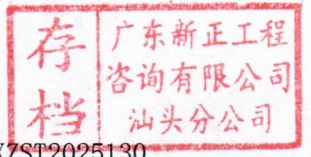 存档
广东新正工程
咨询有限公司
汕头分公司
XZST2025130